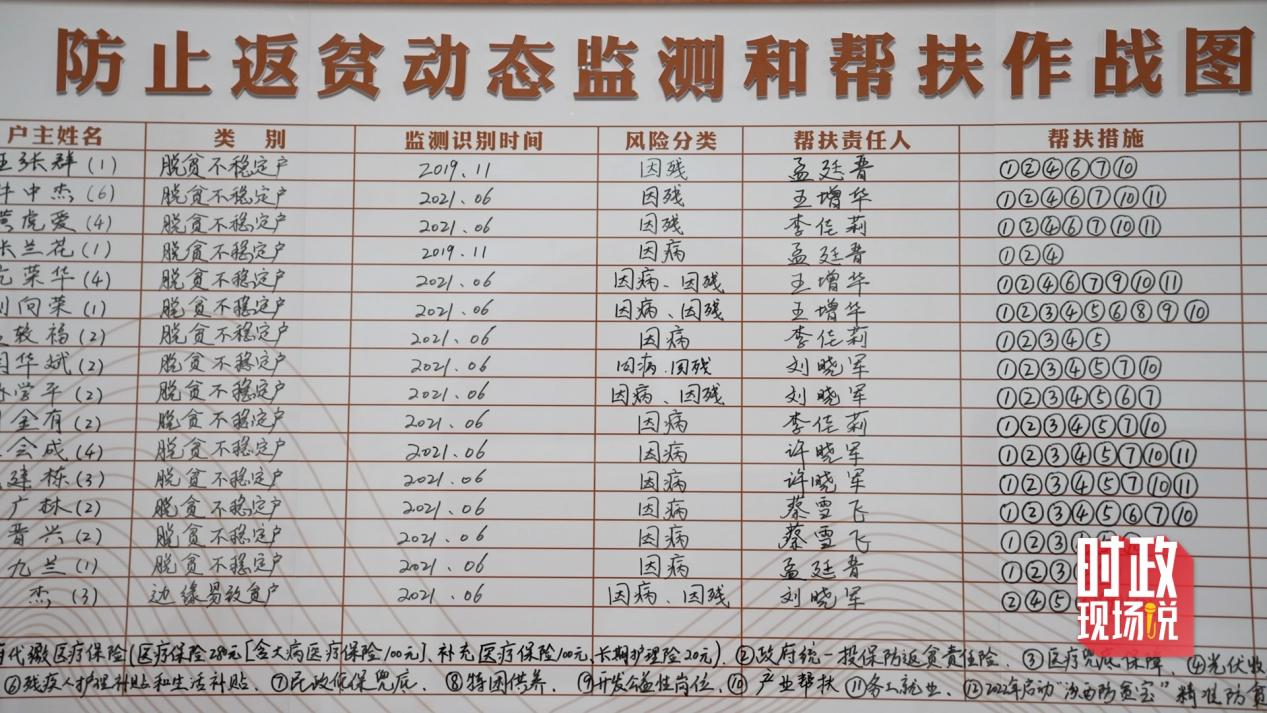 防止返贫动态监测和帮扶作战图
户主姓名 类 别 监测识别时间 风险分类 帮扶责任人 帮扶措施
张群(1) 脱贫不稳定户 2019.11 因残 孟廷晋 ①②④⑥⑦⑩
中杰(6) 脱贫不稳定户 2021.06 因残 王增华 ①②④⑥⑦⑩⑪
虎爱(4) 脱贫不稳定户 2021.06 因残 李佳莉 ①②④⑥⑦⑩⑪
兰花(1) 脱贫不稳定户 2019.11 因病 孟廷晋 ①②④
荣华(4) 脱贫不稳定户 2021.06 因病、因残 王增华 ①②④⑥⑦⑨⑩⑪
向荣(1) 脱贫不稳定户 2021.06 因病、因残 王增华 ①②③④⑤⑥⑧⑨⑩
较福(2) 脱贫不稳定户 2021.06 因病 李佳莉 ①②③④⑤
华斌(2) 脱贫不稳定户 2021.06 因病、因残 刘晓军 ①②③④⑤⑦⑩
学平(2) 脱贫不稳定户 2021.06 因病、因残 刘晓军 ①②③④⑤⑥⑦
金有(2) 脱贫不稳定户 2021.06 因病 李佳莉 ①②③④⑤⑦⑩
会成(4) 脱贫不稳定户 2021.06 因病 许晓军 ①②③④⑤⑦⑩⑪
建栋(3) 脱贫不稳定户 2021.06 因病 许晓军 ①②③④⑤⑦⑩⑪
广林(2) 脱贫不稳定户 2021.06 因病 蔡雪飞 ①②③④⑤⑥⑦⑩
晋兴(2) 脱贫不稳定户 2021.06 因病 蔡雪飞 ①②③
九兰(1) 脱贫不稳定户 2021.06 因病 孟廷晋 ①②③
杰(3) 边缘易致贫户 2021.06 因病、因残 刘晓军 ②④⑤
代缴医疗保险(医疗保险280元[含大病医疗保险100元]、补充医疗保险100元、长期护理险20元)、②政府统一投保防返贫责任险、③医疗兜底保障、④光伏收
⑥残疾人护理补贴和生活补贴、⑦民政低保兜底、⑧特困供养、⑨开发公益性岗位、⑩产业帮扶 ⑪务工就业、⑫2022年启动"汾西防贫宝"精准防贫
时政
现场说